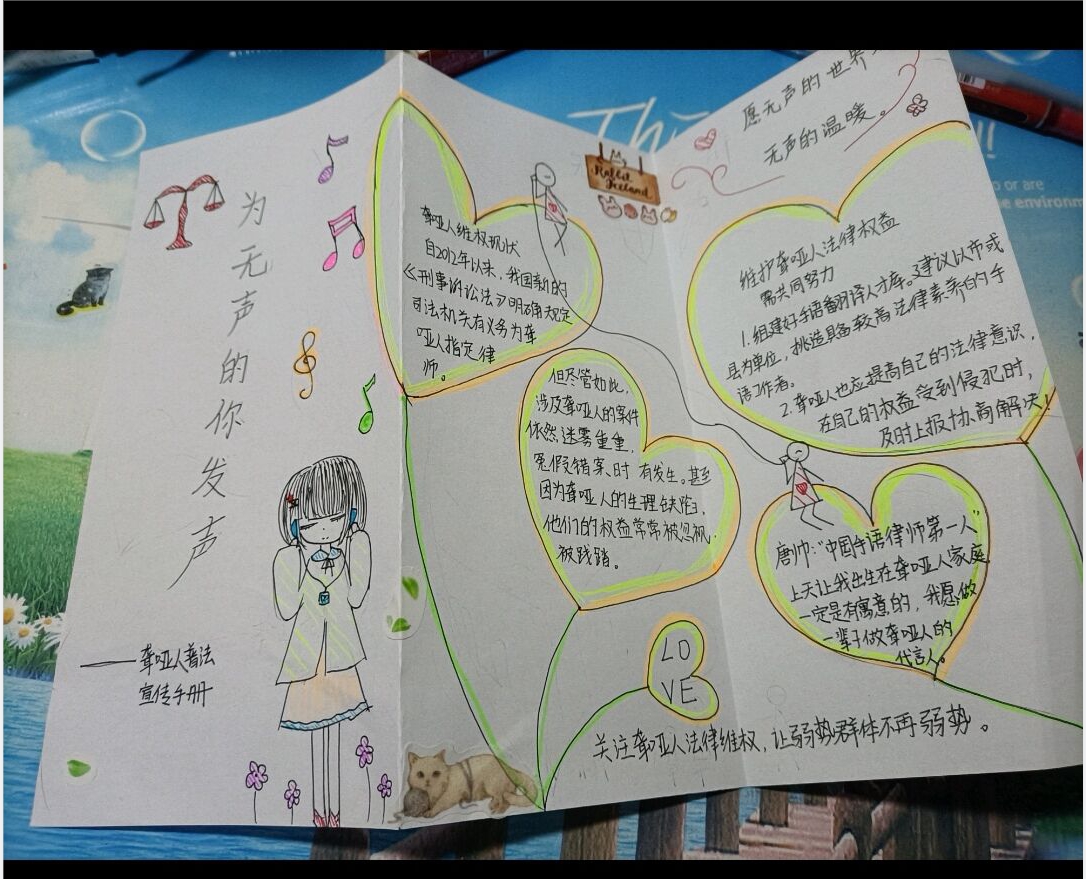 为无声的你发声
——聋哑人普法
宣传手册
聋哑人维权现状
自2012年以来，我国新的
《刑事诉讼法》明确规定
司法机关有义务为聋
哑人指定律
师。
但尽管如此，
涉及聋哑人的案件
依然迷雾重重，
冤假错案时有发生。甚至
因为聋哑人的生理缺陷，
他们的权益常常被忽视，
被践踏。
LO
VE
Rabbit
Iceland
愿无声的世界
无声的温暖。
维护聋哑人法律权益
需共同努力
1.组建好手语翻译人才库。建议以市或
县为单位，挑选具备较高法律素养的手
语工作者。
2.聋哑人也应提高自己的法律意识，
在自己的权益受到侵犯时，
及时上报协商解决！
唐帅：“中国手语律师第一人”
上天让我出生在聋哑人家庭
一定是有寓意的，我愿做
一辈子做聋哑人的
代言人。
关注聋哑人法律维权，让弱势群体不再弱势。
Thi
!!
o or are
e environm